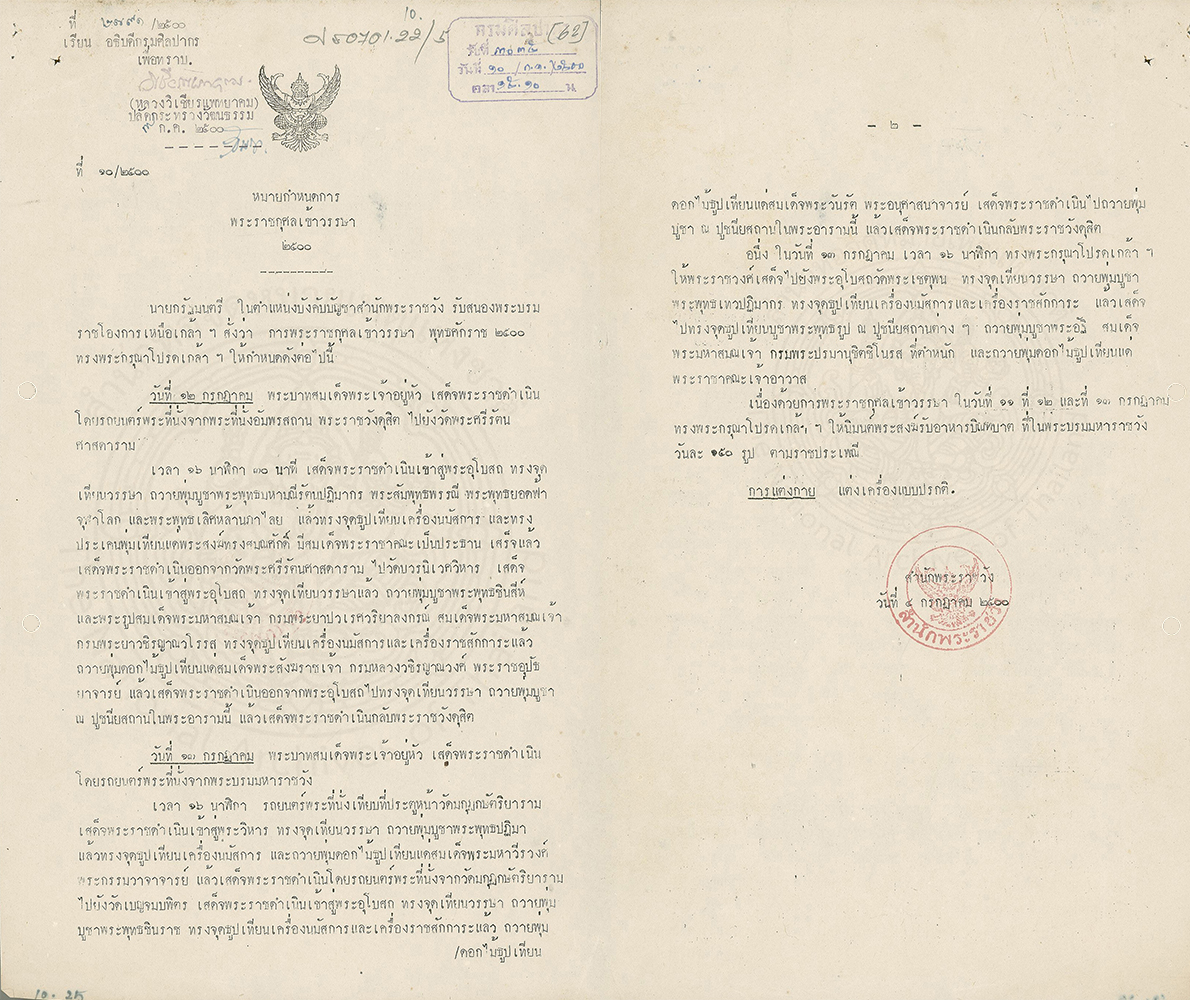 ที่ ๒๗๙๑ /๒๕๐๐
เรียน อธิบดีกรมศิลปากร
เพื่อทราบ.
(หลวงวิเชียรแพทยาคม)
ปลัดกระทรวงวัฒนธรรม
ก.ค. ๒๕๐๐
10.
กรมศิลป [62]
วันที่ ๑๐ / ก.ค. /๒๕๐๐
เวลา ๑๕.๑๐ น.
ที่ ๑๐/๒๕๐๐
หมายกำหนดการ
พระราชกุศลเข้าวรรษา
๒๕๐๐
----------
นายกรัฐมนตรี ในตำแหน่งบังคับบัญชาสำนักพระราชวัง รับสนองพระบรม
ราชโองการเหนือเกล้า ฯ สั่งว่า การพระราชกุศลเข้าวรรษา พุทธศักราช ๒๕๐๐
ทรงพระกรุณาโปรดเกล้า ฯ ให้กำหนดดังต่อไปนี้
วันที่ ๑๒ กรกฎาคม พระบาทสมเด็จพระเจ้าอยู่หัว เสด็จพระราชดำเนิน
โดยรถยนตร์พระที่นั่งจากพระที่นั่งอัมพรสถาน พระราชวังดุสิต ไปยังวัดพระศรีรัตน
ศาสดาราม
เวลา ๑๖ นาฬิกา ๓๐ นาที เสด็จพระราชดำเนินเข้าสู่พระอุโบสถ ทรงจุด
เทียนวรรษา ถวายพุ่มบูชาพระพุทธมหามณีรัตนปฏิมากร พระสัมพุทธพรรณี พระพุทธยอดฟ้า
จุฬาโลก และพระพุทธเลิศหล้านภาไลย แล้วทรงจุดธูปเทียนเครื่องนมัสการ และทรง
ประเคนพุ่มเทียนแด่พระสงฆ์ทรงสมณศักดิ์ มีสมเด็จพระราชาคณะเป็นประธาน เสร็จแล้ว
เสด็จพระราชดำเนินออกจากวัดพระศรีรัตนศาสดาราม ไปวัดบวรนิเวศวิหาร เสด็จ
พระราชดำเนินเข้าสู่พระอุโบสถ ทรงจุดเทียนวรรษาแล้ว ถวายพุ่มบูชาพระพุทธชินสีห์
และพระรูปสมเด็จพระมหาสมณเจ้า กรมพระยาปวเรศวริยาลงกรณ์ สมเด็จพระมหาสมณเจ้า
กรมพระยาวชิรญาณวโรรส ทรงจุดธูปเทียนเครื่องนมัสการและเครื่องราชสักการะแล้ว
ถวายพุ่มดอกไม้ธูปเทียนแด่สมเด็จพระสังฆราชเจ้า กรมหลวงวชิรญาณวงศ์ พระราชอุปัธ
ยาจารย์ แล้วเสด็จพระราชดำเนินออกจากพระอุโบสถไปทรงจุดเทียนวรรษา ถวายพุ่มบูชา
ณ ปูชนียสถานในพระอารามนี้ แล้วเสด็จพระราชดำเนินกลับพระราชวังดุสิต
วันที่ ๑๓ กรกฎาคม พระบาทสมเด็จพระเจ้าอยู่หัว เสด็จพระราชดำเนิน
โดยรถยนตร์พระที่นั่งจากพระบรมมหาราชวัง
เวลา ๑๖ นาฬิกา รถยนตร์พระที่นั่งเทียบที่ประตูหน้าวัดมกุฏกษัตริยาราม
เสด็จพระราชดำเนินเข้าสู่พระวิหาร ทรงจุดเทียนวรรษา ถวายพุ่มบูชาพระพุทธปฏิมา
แล้วทรงจุดธูปเทียนเครื่องนมัสการ และถวายพุ่มดอกไม้ธูปเทียนแด่สมเด็จพระมหาวีรวงศ์
พระกรรมวาจาจารย์ แล้วเสด็จพระราชดำเนินโดยรถยนตร์พระที่นั่งจากวัดมกุฏกษัตริยาราม
ไปยังวัดเบญจมบพิตร เสด็จพระราชดำเนินเข้าสู่พระอุโบสถ ทรงจุดเทียนวรรษา ถวายพุ่ม
บูชาพระพุทธชินราช ทรงจุดธูปเทียนเครื่องนมัสการและเครื่องราชสักการะแล้ว ถวายพุ่ม
/ดอกไม้ธูปเทียน
10. 25
- ๒ -
ดอกไม้ธูปเทียนแด่สมเด็จพระวันรัต พระอนุศาสนาจารย์ เสด็จพระราชดำเนินไปถวายพุ่ม
บูชา ณ ปูชนียสถานในพระอารามนี้ แล้วเสด็จพระราชดำเนินกลับพระราชวังดุสิต
อนึ่ง ในวันที่ ๑๓ กรกฎาคม เวลา ๑๖ นาฬิกา ทรงพระกรุณาโปรดเกล้า ฯ
ให้พระราชวงศ์เสด็จไปยังพระอุโบสถวัดพระเชตุพน ทรงจุดเทียนวรรษา ถวายพุ่มบูชา
พระพุทธเทวปฏิมากร ทรงจุดธูปเทียนเครื่องนมัสการและเครื่องราชสักการะ แล้วเสด็จ
ไปทรงจุดธูปเทียนบูชาพระพุทธรูป ณ ปูชนียสถานต่าง ๆ ถวายพุ่มบูชาพระอัฐิ สมเด็จ
พระมหาสมณเจ้า กรมพระปรมานุชิตชิโนรส ที่ตำหนัก และถวายพุ่มดอกไม้ธูปเทียนแด่
พระราชาคณะเจ้าอาวาส
เนื่องด้วยการพระราชกุศลเข้าวรรษา ในวันที่ ๑๑ ที่ ๑๒ และที่ ๑๓ กรกฎาคม
ทรงพระกรุณาโปรดเกล้า ฯ ให้นิมนต์พระสงฆ์รับอาหารบิณฑบาต ที่ในพระบรมมหาราชวัง
วันละ ๑๕๐ รูป ตามราชประเพณี
การแต่งกาย แต่งเครื่องแบบปรกติ.
สำนักพระราชวัง
วันที่ ๔ กรกฎาคม ๒๕๐๐
สำนักพระราชวัง